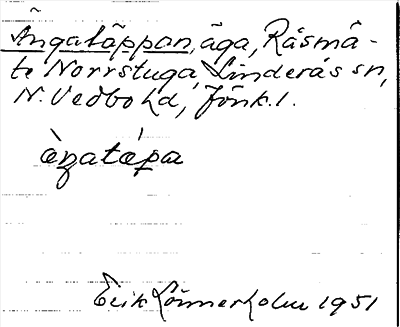 Ängatäppan, äga, Råsmå-
te Norrstuga, Linderås sn,
N. Vedbo hd, Jönk. l.
àŋatǽpa
Erik Lönnerholm 1951